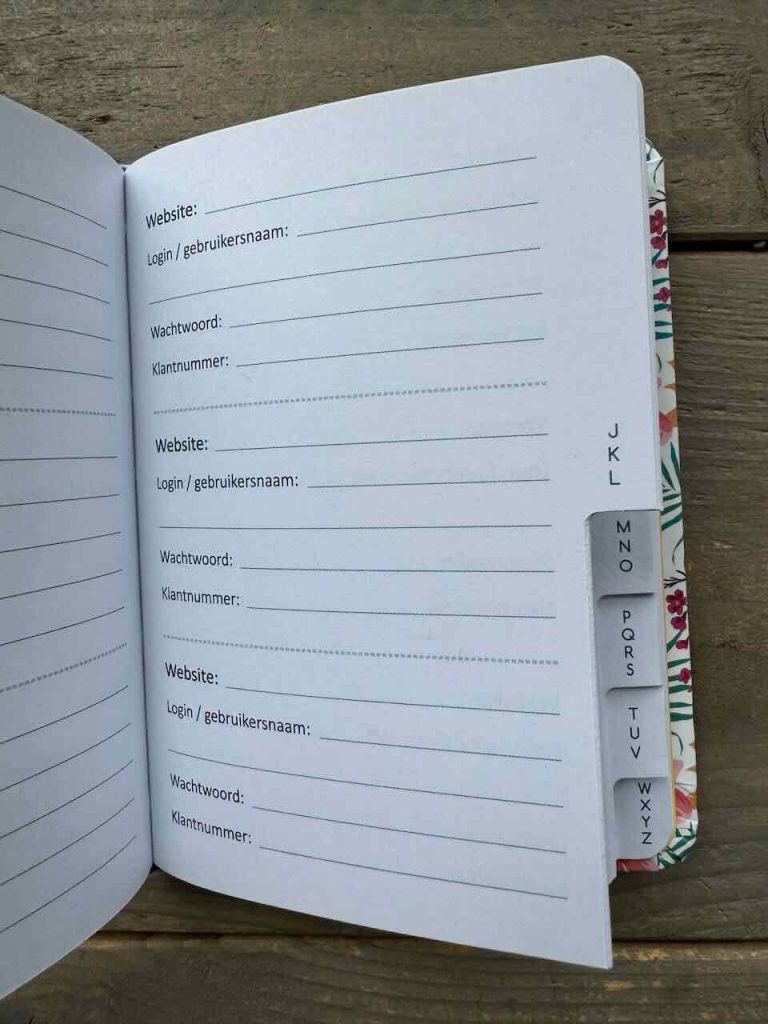 Website:
Login / gebruikersnaam:
Wachtwoord:
Klantnummer:
Website:
Login / gebruikersnaam:
Wachtwoord:
Klantnummer:
Website:
Login / gebruikersnaam:
Wachtwoord:
Klantnummer:
J
K
L
M
N
O
P
Q
R
S
T
U
V
W
X
Y
Z